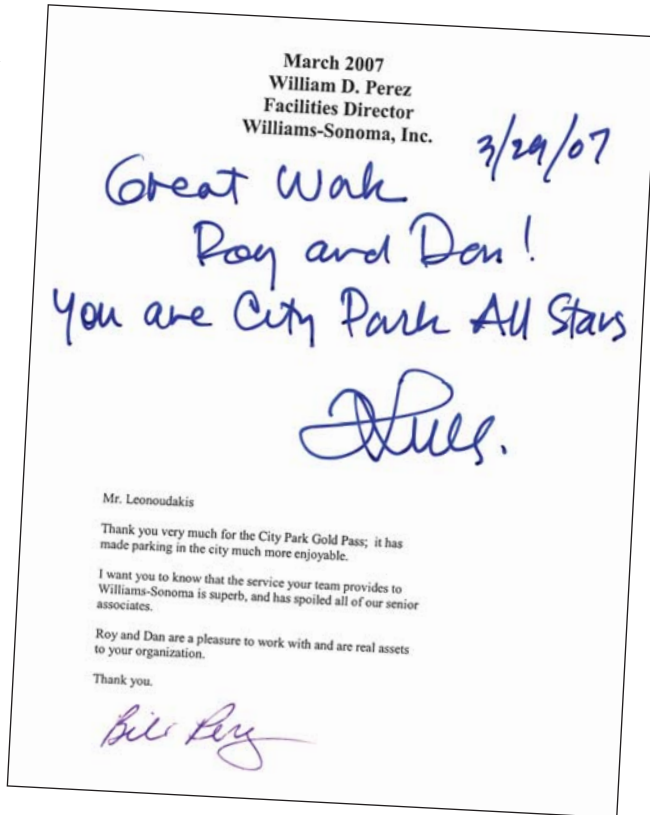 March 2007
William D. Perez
Facilities Director
Williams-Sonoma, Inc.
3/29/07
Great Work
Roy and Dan!
You are City Park All Stars
Mr. Leonoudakis
Thank you very much for the City Park Gold Pass; it has
made parking in the city much more enjoyable.
I want you to know that the service your team provides to
Williams-Sonoma is superb, and has spoiled all of our senior
associates.
Roy and Dan are a pleasure to work with and are real assets
to your organization.
Thank you.
Bill Perez